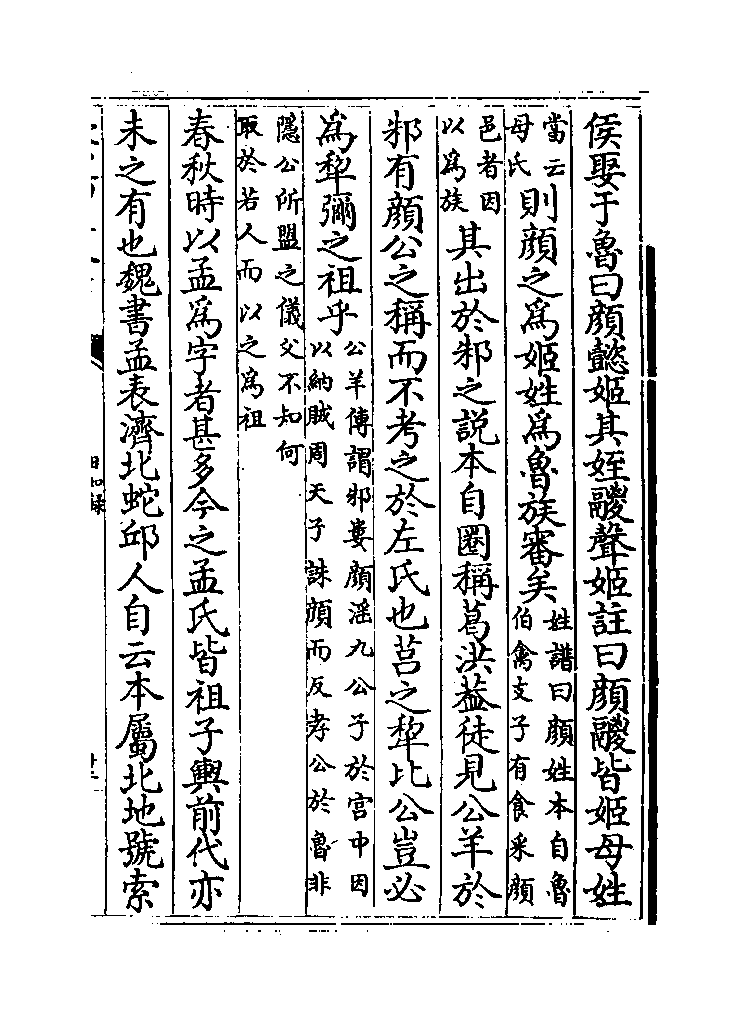 侯娶于魯曰顔懿姬其姪鬷聲姬註曰顔鬷皆姬母姓
當云母氏則顔之為姬姓為魯族審矣姓譜曰顔姓本自魯伯禽支子有食采顔
邑者因以為族其出於邾之説本自圏稱葛洪葢徒見公羊於
邾有顔公之稱而不考之於左氏也莒之犂比公豈必
為犂彌之祖乎公羊傳謂邾婁顔淫九公子於宫中因以納賊周天子誅顔而反孝公於魯非
隱公所盟之儀父不知何取於若人而以之為祖
春秋時以孟為字者甚多今之孟氏皆祖子輿前代亦
未之有也魏書孟表濟北蛇邱人自云本屬北地號索
日知錄